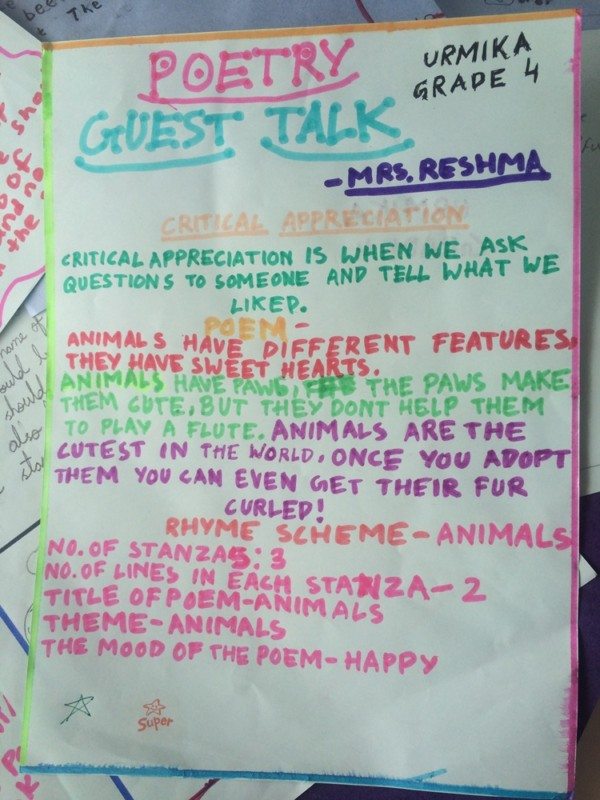 POETRY
GUEST TALK
URMIKA
GRADE 4
-MRS. RESHMA
CRITICAL APPRECIATION
CRITICAL APPRECIATION IS WHEN WE ASK
QUESTIONS TO SOMEONE AND TELL WHAT WE
LIKED.
POEM-
ANIMALS HAVE DIFFERENT FEATURES,
THEY HAVE SWEET HEARTS.
ANIMALS HAVE PAWS, THE PAWS MAKE
THEM CUTE, BUT THEY DONT HELP THEM
TO PLAY A FLUTE. ANIMALS ARE THE
CUTEST IN THE WORLD, ONCE YOU ADOPT
THEM YOU CAN EVEN GET THEIR FUR
CURLED!
RHYME SCHEME-ANIMALS
NO. OF STANZAS: 3
NO. OF LINES IN EACH STANZA-2
TITLE OF POEM-ANIMALS
THEME-ANIMALS
THE MOOD OF THE POEM-HAPPY
Super